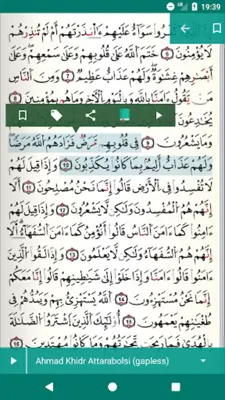 19:39
سَوَآءٌ عَلَيْهِمْ ءَأَنذَرْتَهُمْ أَمْ لَمْ تُنذِرْهُمْ
لَا يُؤْمِنُونَ ٦ خَتَمَ ٱللَّهُ عَلَىٰ قُلُوبِهِمْ وَعَلَىٰ سَمْعِهِمْ وَعَلَىٰٓ
أَبْصَٰرِهِمْ غِشَٰوَةٌ وَلَهُمْ عَذَابٌ عَظِيمٌ ٧ وَمِنَ ٱلنَّاسِ
مَن يَقُولُ ءَامَنَّا بِٱللَّهِ وَبِٱلْيَوْمِ ٱلْءَاخِرِ وَمَا هُم بِمُؤْمِنِينَ ٨
يُخَٰدِعُونَ
وَمَا يَشْعُرُونَ ٩ فِى قُلُوبِهِم مَّرَضٌ فَزَادَهُمُ ٱللَّهُ مَرَضًا
وَلَهُمْ عَذَابٌ أَلِيمٌۢ بِمَا كَانُوا۟ يَكْذِبُونَ ١٠ وَإِذَا قِيلَ لَهُمْ
لَا تُفْسِدُوا۟ فِى ٱلْأَرْضِ قَالُوٓا۟ إِنَّمَا نَحْنُ مُصْلِحُونَ ١١
أَلَآ إِنَّهُمْ هُمُ ٱلْمُفْسِدُونَ وَلَٰكِن لَّا يَشْعُرُونَ ١٢ وَإِذَا قِيلَ
لَهُمْ ءَامِنُوا۟ كَمَآ ءَامَنَ ٱلنَّاسُ قَالُوٓا۟ أَنُؤْمِنُ كَمَآ ءَامَنَ ٱلسُّفَهَآءُ أَلَآ
إِنَّهُمْ هُمُ ٱلسُّفَهَآءُ وَلَٰكِن لَّا يَعْلَمُونَ ١٣ وَإِذَا لَقُوا۟ ٱلَّذِينَ
ءَامَنُوا۟ قَالُوٓا۟ ءَامَنَّا وَإِذَا خَلَوْا۟ إِلَىٰ شَيَٰطِينِهِمْ قَالُوٓا۟ إِنَّا مَعَكُمْ
إِنَّمَا نَحْنُ مُسْتَهْزِءُونَ ١٤ ٱللَّهُ يَسْتَهْزِئُ بِهِمْ وَيَمُدُّهُمْ فِى
طُغْيَٰنِهِمْ يَعْمَهُونَ ١٥ أُو۟لَٰٓئِكَ ٱلَّذِينَ ٱشْتَرَوُا۟ ٱلضَّلَٰلَةَ
Ahmad Khidr Attarabolsi (gapless)